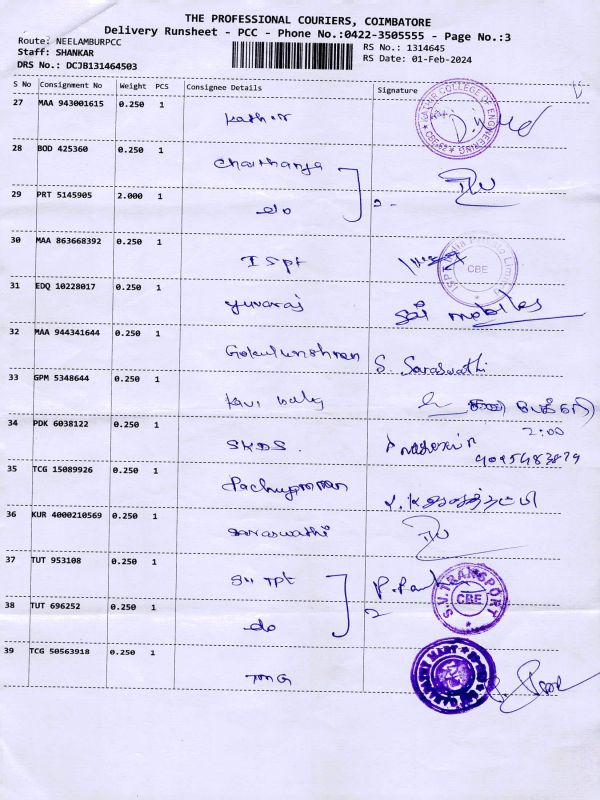 THE PROFESSIONAL COURIERS, COIMBATORE
Delivery Runsheet - PCC - Phone No.:0422-3505555 - Page No.:3
Route: NEELAMBURPCC
RS No.: 1314645
Staff: SHANKAR
RS Date: 01-Feb-2024
DRS No.: DCJB131464503
S No Consignment No Weight PCS Consignee Details Signature
27 MAA 943001615 0.250 1
Kathir
28 BOD 425360 0.250 1
Chaithanya
29 PRT 5145905 2.000 1
do 2-
30 MAA 863668392 0.250 1
ISpt CBE
31 EDQ 10228017 0.250 1
yuvaraj
mobiles
32 MAA 944341644 0.250 1
S. Saraswathi
33 GPM 5348644 0.250 1
34 PDK 6038122 0.250 1
2:00
SKDS.
35 TCG 15089926 0.250 1
36 KUR 4000210569 0.250 1
saraswathi
37 TUT 953108 0.250 1
S.V.TRANSPORT
CBE
38 TUT 696252 0.250 1
do 2
39 TCG 50563918 0.250 1